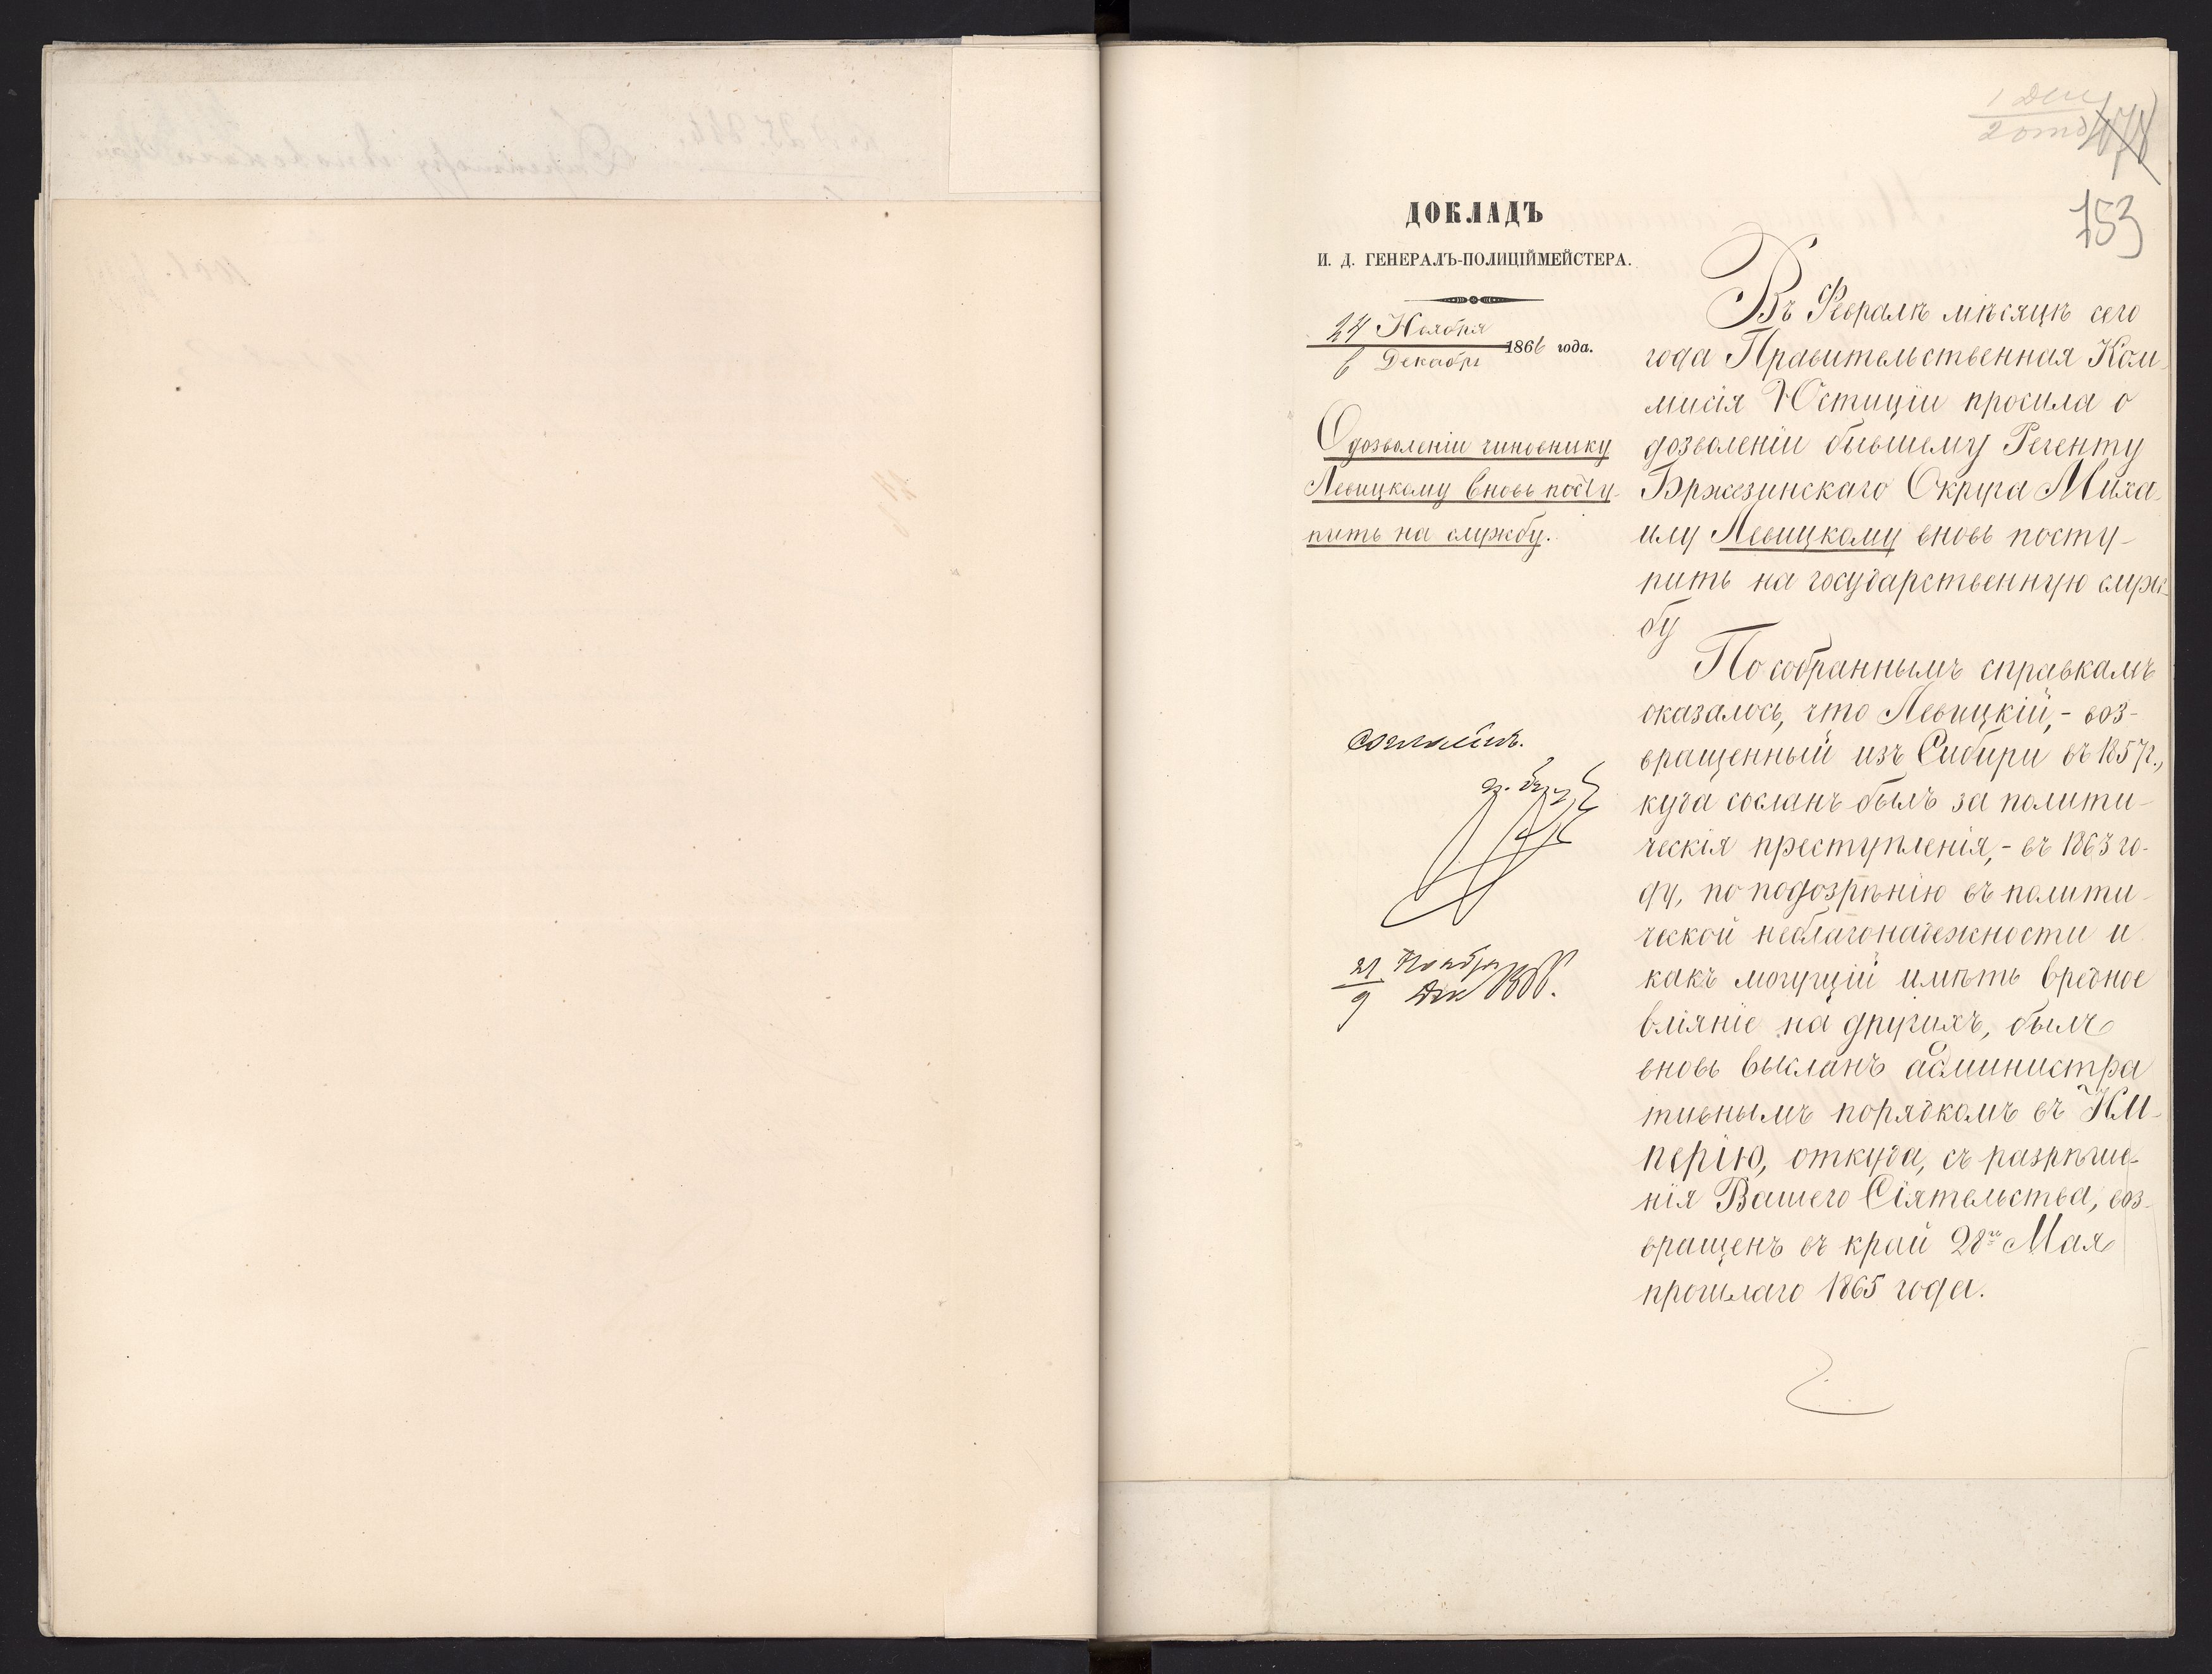 1 Деп
2 отд
153
ДОКЛАДЪ
И. Д. ГЕНЕРАЛЪ-ПОЛИЦІЙМЕЙСТЕРА.
24 Ноября
6 Декабря
1866 года.
О дозволеніи чиновнику
Левицкому вновь посту-
пить на службу.
Согласенъ.
21 Ноября
9 Дек 1866.
Въ Февралѣ мѣсяцѣ сего
года Правительственная Ком-
мисія Юстиціи просила о
дозволеніи бывшему Регенту
Бржезинскаго Округа Миха-
илу Левицкому вновь посту-
пить на государственную служ-
бу
По собраннымъ справкамъ
оказалось, что Левицкій,- воз-
вращенный изъ Сибири въ 1857г.,
куда сосланъ былъ за полити-
ческія преступленія,- въ 1863 го-
ду, по подозрѣнію въ полити-
ческой неблагонадежности и
какъ могущій имѣть вредное
вліяніе на другихъ, былъ
вновь высланъ администра
тивнымъ порядкомъ въ Им-
перію, откуда, съ разрѣше-
нія Вашего Сіятельства, воз-
вращенъ въ край 28го Мая
прошлаго 1865 года.